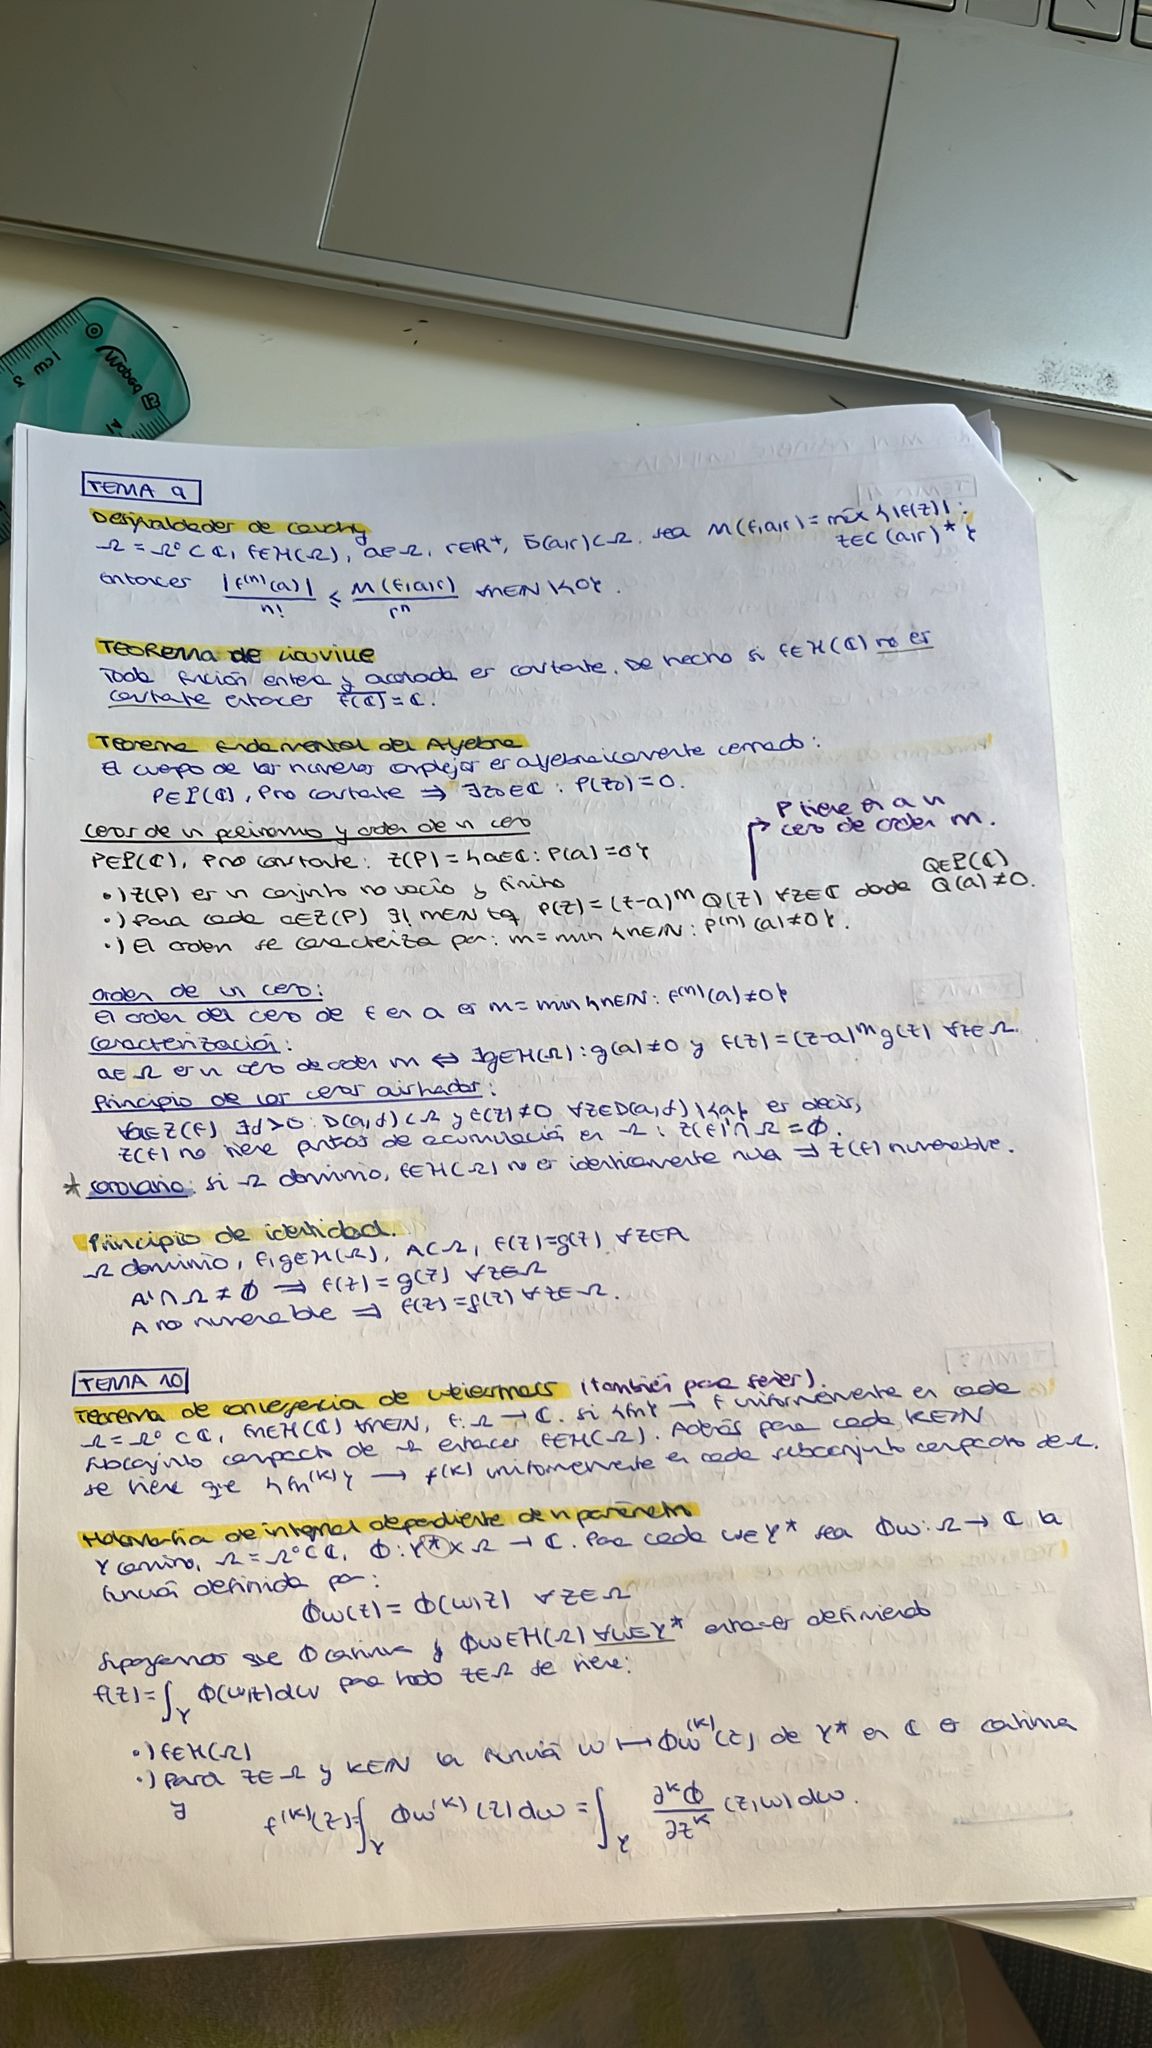 TEMA 9
Desigualdades de Cauchy
Ω = Ω° ⊂ ℂ, f∈H(Ω), a∈Ω, r∈ℝ⁺, D̄(a,r)⊂Ω. sea M(f,a,r) = máx {|f(z)| :
z∈C(a,r)* }
entonces |f⁽ⁿ⁾(a)| / n! ≤ M(f,a,r) / rⁿ ∀n∈ℕ∪{0}.
TEOREMA DE Liouville
Toda función entera y acotada es constante. De hecho si f∈H(ℂ) no es
constante entonces f(ℂ)‾ = ℂ.
Teorema fundamental del Algebra
El cuerpo de los números complejos es algebraicamente cerrado:
P∈P(ℂ), P no constante ⇒ ∃z₀∈ℂ : P(z₀)=0.
Ceros de un polinomio y orden de un cero
P tiene en a un
cero de orden m.
P∈P(ℂ), P no constante: Z(P) = {a∈ℂ: P(a)=0}
•) Z(P) es un conjunto no vacío y finito
•) Para cada a∈Z(P) ∃! m∈ℕ tq P(z) = (z-a)ᵐ Q(z) ∀z∈ℂ donde Q∈P(ℂ) Q(a)≠0.
•) El orden se caracteriza por: m = min {n∈ℕ: P⁽ⁿ⁾(a)≠0}.
orden de un cero:
El orden del cero de f en a es m = min {n∈ℕ: f⁽ⁿ⁾(a)≠0}
Caracterización:
a∈Ω es un cero de orden m ⇔ ∃g∈H(Ω): g(a)≠0 y f(z) = (z-a)ᵐ g(z) ∀z∈Ω.
Principio de los ceros aislados:
∀a∈Z(f) ∃δ>0: D(a,δ)⊂Ω y f(z)≠0 ∀z∈D(a,δ)\{a}, es decir,
Z(f) no tiene puntos de acumulación en Ω: Z(f)'∩Ω = ∅.
* corolario: si Ω dominio, f∈H(Ω) no es idénticamente nula ⇒ Z(f) numerable.
Principio de identidad.
Ω dominio, f,g∈H(Ω), A⊂Ω, f(z)=g(z) ∀z∈A
A'∩Ω ≠ ∅ ⇒ f(z) = g(z) ∀z∈Ω
A no numerable ⇒ f(z) = g(z) ∀z∈Ω.
TEMA 10
Teorema de convergencia de Weierstrass (también para series).
Ω = Ω° ⊂ ℂ, fn∈H(ℂ) ∀n∈ℕ, f: Ω → ℂ. Si {fn} → f uniformemente en cada
subconjunto compacto de Ω entonces f∈H(Ω). Además para cada k∈ℕ
se tiene que {fn⁽ᵏ⁾} → f⁽ᵏ⁾ uniformemente en cada subconjunto compacto de Ω.
Holomorfía de integral dependiente de un parámetro
γ camino, Ω = Ω° ⊂ ℂ, Φ: γ* × Ω → ℂ. Para cada w∈γ* sea Φw: Ω → ℂ la
función definida por:
Φw(z) = Φ(w,z) ∀z∈Ω
Supongamos que Φ continua y Φw∈H(Ω) ∀w∈γ* entonces definiendo
f(z) = ∫γ Φ(w,z)dw para todo z∈Ω se tiene:
•) f∈H(Ω)
•) para z∈Ω y k∈ℕ la función w ↦ Φw⁽ᵏ⁾(z) de γ* en ℂ es continua
y f⁽ᵏ⁾(z) = ∫γ Φw⁽ᵏ⁾(z)dw = ∫γ ∂ᵏΦ/∂zᵏ (z,w)dw.
1 cm 2